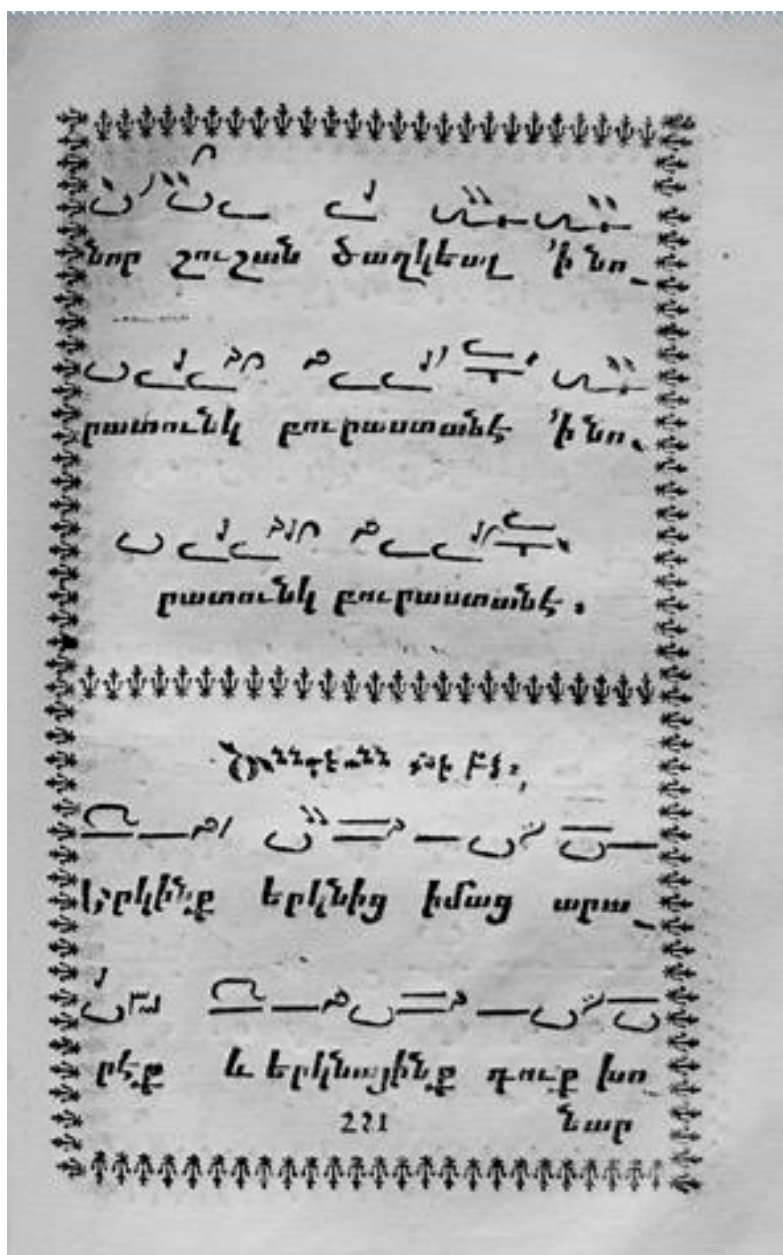 նոր շուշան ծաղկեալ ՚ի նո֊
րատունկ բուրաստանէ ՚ի նո֊
րատունկ բուրաստանէ ։
Երկինք երկնից իմաց արա֊
րէք և երկնայինք դուք խո
221
նար